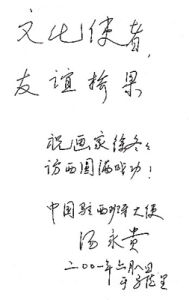 文化使者，
友谊桥梁
祝画家徐冬冬
访西圆满成功！
中国驻西班牙大使
汤永贵
二〇〇一年六月八日
于马德里